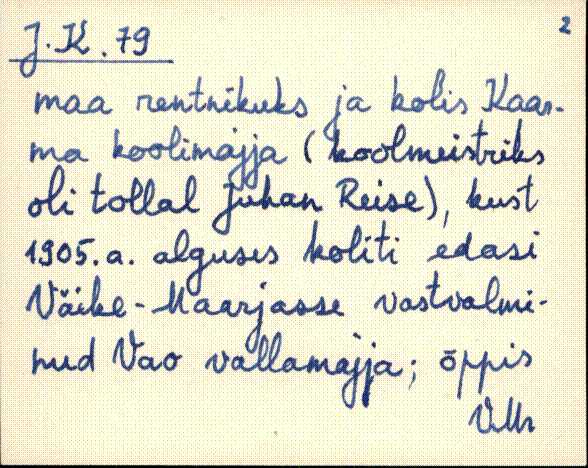 J.K. 79
2
maa rentnikuks ja kolis Kaar-
ma koolimajja (koolmeistriks
oli tollal Juhan Reise), kust
1905.a. alguses koliti edasi
Väike-Maarjasse vastvalmi-
nud Vao vallamajja; õppis
VMr